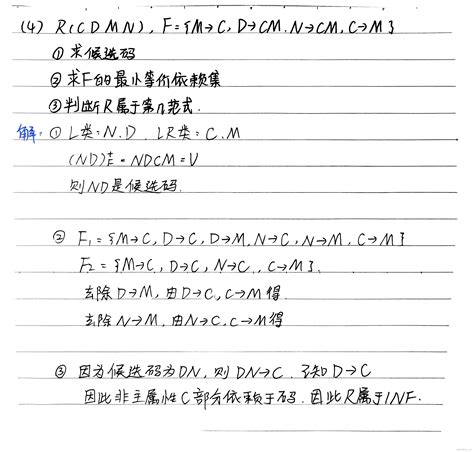 (4) R(CDMN), F={M→C, D→CM, N→CM, C→M}
① 求候选码
② 求F的最小等价依赖集
③ 判断R属于第几范式.
解: ① L类: N.D . LR类: C.M
(ND)⁺F = NDCM = U
则ND是候选码.
② F₁={M→C, D→C, D→M, N→C, N→M, C→M}
F₂={M→C, D→C, N→C, C→M}.
去除D→M, 由D→C, C→M得.
去除N→M, 由N→C, C→M得
③ 因为候选码为DN, 则DN→C. 又知D→C
因此非主属性C部分依赖于码. 因此R属于1NF.